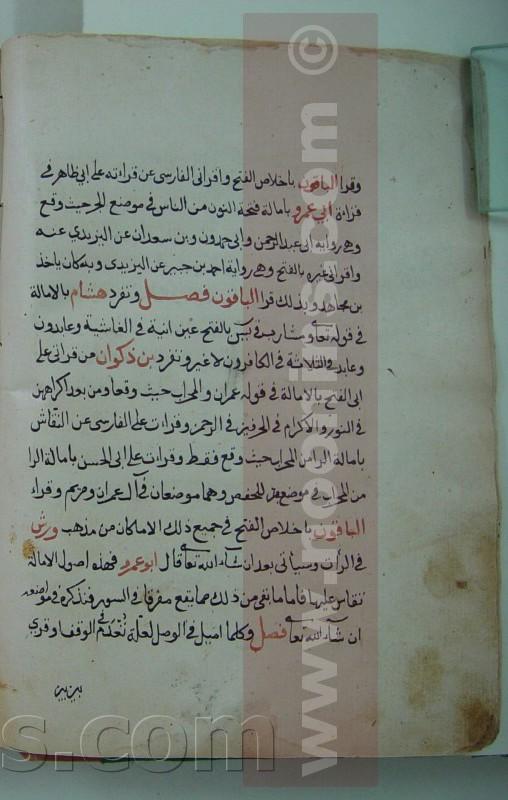 وقرا الباقون باخلاص الفتح واقرانى الفارسى عن قراءته على ابى طاهر فى
قراءة ابى عمرو بامالة فتحة النون من الناس فى موضع الجر حيث وقع
وهى رواية ابى عبد الرحمن وابى حمدون وبن سعدان عن اليزيدى عنه
واقرانى غيره بالفتح وهى رواية احمد بن جبير عن اليزيدى وبه كان ياخذ
بن مجاهد وبذلك قرا الباقون فصل وتفرد هشام بالامالة
فى قوله تعا ومشارب فى يس بالفتح عين انية فى الغاشية وعابدون
وعابد والثلاثة فى الكافرون لا غير وتفرد بن ذكوان من قراتى على
ابى الفتح بالامالة فى قوله عمران والمحراب حيث وقعا ومن بعد اكراههن
فى النور والاكرام فى الحرفين فى الرحمن وقرات على الفارسى عن النقاش
بامالة الرا من المحراب حيث وقع فقط وقرات على ابى الحسن بامالة الرا
من المحراب فى موضع الخفض وهما موضعان فى آل عمران ومريم وقراء
الباقون باخلاص الفتح فى جميع ذلك الا ما كان من مذهب ورش
فى الرات وسياتى بعد ان شاء الله تعا قال ابو عمرو فهذه اصول الامالة
تقاس عليها فاما ما بقى من ذلك مما يقع مفرقا فى السور فنذكره فى مواضعه
ان شاء الله تعا فصل وكلما اميل فى الوصل لعلة تعدم فى الوقف وقرى
www.noorlns.com ©
s.com